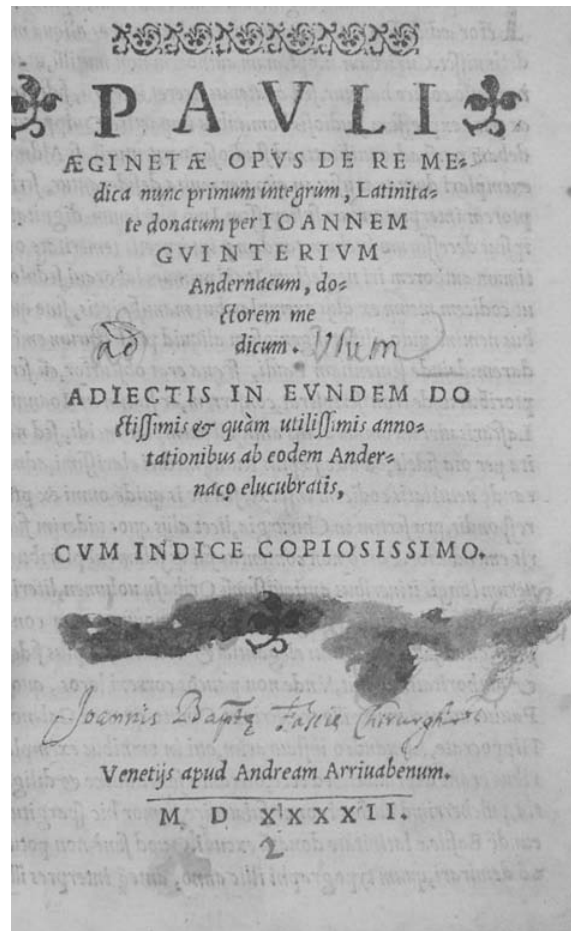 PAVLI
ÆGINETÆ OPVS DE RE ME-
dica nunc primum integrum, Latinita-
te donatum per IOANNEM
GVINTERIVM
Andernacum, do-
ctorem me
ad dicum. Vsum
ADIECTIS IN EVNDEM DO
ctissimis & quàm utilissimis anno-
tationibus ab eodem Ander-
naco elucubratis,
CVM INDICE COPIOSISSIMO.
Joannis Baptę
Venetijs apud Andream Arriuabenum.
M. D XXXXII.
2